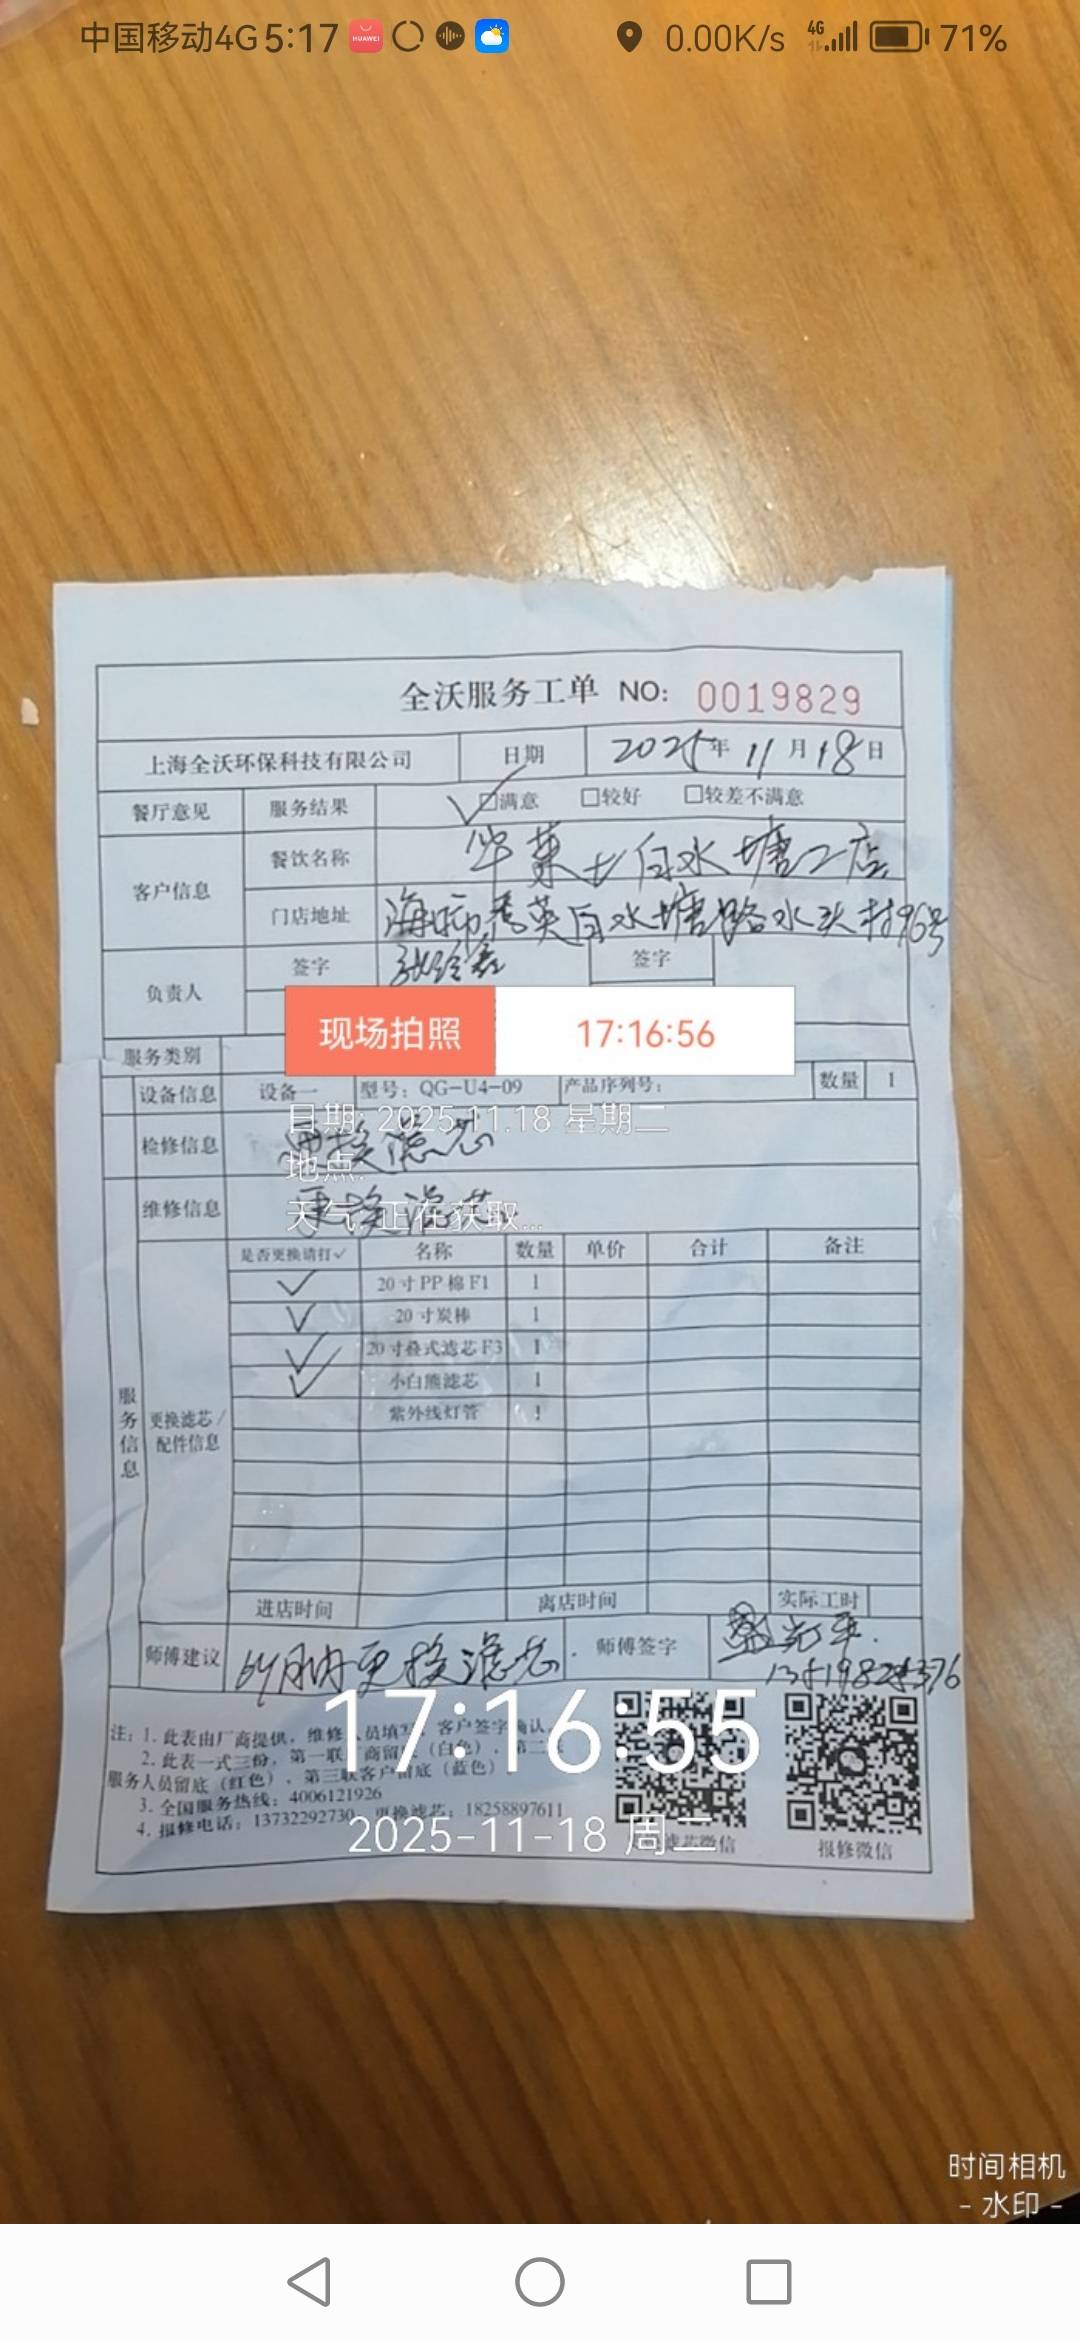 中国移动4G 5:17 HUAWEI 0.00K/s 4G 71%
全沃服务工单 NO: 0019829
上海全沃环保科技有限公司 日期 2025年11月18日
餐厅意见 服务结果 ☑满意 □较好 □较差不满意
客户信息 餐饮名称 华莱士白水塘二店
门店地址 海口市秀英白水塘路水头村96号
负责人 签字 签字
现场拍照 17:16:56
服务类别
设备信息 设备一 型号: QG-U4-09 产品序列号: 数量 1
日期: 2025.11.18 星期二
检修信息 更换滤芯
地点:
维修信息 更换滤芯
天气: 正在获取...
是否更换请打✓ 名称 数量 单价 合计 备注
✓ 20寸PP棉F1 1
✓ 20寸炭棒 1
✓ 20寸叠式滤芯F3 1
✓ 小白熊滤芯 1
紫外线灯管 1
服务信息 更换滤芯/配件信息
进店时间 离店时间 实际工时
师傅建议 6个月内更换滤芯 师傅签字
17:16:55
注: 1. 此表由厂商提供, 维修人员填写, 客户签字确认。
2. 此表一式三份, 第一联厂商留底(白色), 第二联
服务人员留底(红色), 第三联客户留底(蓝色)。
3. 全国服务热线: 4006121926
4. 报修电话: 13732292730 更换滤芯: 18258897611
2025-11-18 周二
报修微信
时间相机
- 水印 -